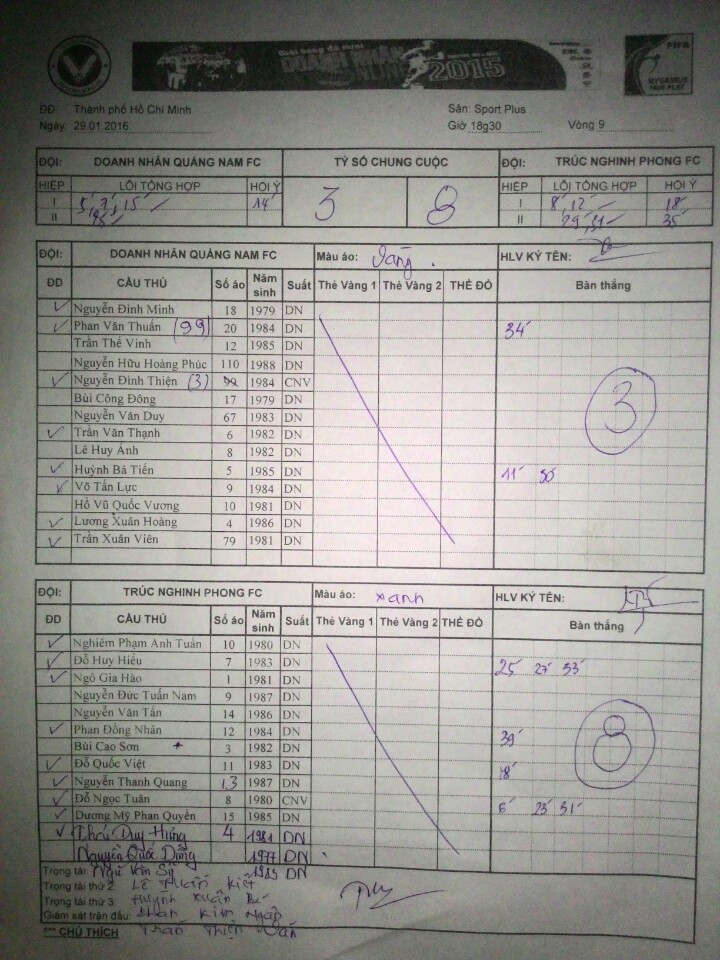 Giải bóng đá mini
DOANH NHÂN
ONLINE 2015
FIFA
MY GAME IS
FAIR PLAY
ĐĐ: Thành phố Hồ Chí Minh Sân: Sport Plus
Ngày: 29.01.2016 Giờ 18g30 Vòng 9
ĐỘI: DOANH NHÂN QUẢNG NAM FC TỶ SỐ CHUNG CUỘC ĐỘI: TRÚC NGHINH PHONG FC
HIỆP LỖI TỔNG HỢP HỘI Ý 3 8 HIỆP LỖI TỔNG HỢP HỘI Ý
I 5' 7' 15' 14' I 8' 12' 18'
II II 29' 31' 35'
ĐỘI: DOANH NHÂN QUẢNG NAM FC Màu áo: Vàng. HLV KÝ TÊN:
ĐD CẦU THỦ Số áo Năm sinh Suất Thẻ Vàng 1 Thẻ Vàng 2 THẺ ĐỎ Bàn thắng
Nguyễn Đình Minh 18 1979 DN
Phan Văn Thuấn (99) 20 1984 DN 34'
Trần Thế Vinh 12 1985 DN
Nguyễn Hữu Hoàng Phúc 110 1988 DN
Nguyễn Đình Thiện (3) 1984 CNV 3
Bùi Công Đông 17 1979 DN
Nguyễn Văn Duy 67 1983 DN
Trần Văn Thạnh 6 1982 DN
Lê Huy Ánh 8 1982 DN
Huỳnh Bá Tiến 5 1985 DN 11'
Võ Tấn Lực 9 1984 DN
Hồ Vũ Quốc Vương 10 1981 DN
Lương Xuân Hoàng 4 1986 DN
Trần Xuân Viên 79 1981 DN
ĐỘI: TRÚC NGHINH PHONG FC Màu áo: xanh HLV KÝ TÊN:
ĐD CẦU THỦ Số áo Năm sinh Suất Thẻ Vàng 1 Thẻ Vàng 2 THẺ ĐỎ Bàn thắng
Nghiêm Phạm Anh Tuấn 10 1980 DN
Đỗ Huy Hiếu 7 1983 DN 25' 27' 33'
Ngô Gia Hào 1 1981 DN
Nguyễn Đức Tuấn Nam 9 1987 DN
Nguyễn Văn Tấn 14 1986 DN
Phan Đồng Nhân 12 1984 DN 39' 8
Bùi Cao Sơn 3 1982 DN
Đỗ Quốc Việt 11 1983 DN 18'
Nguyễn Thanh Quang 13 1987 DN
Đỗ Ngọc Tuân 8 1980 CNV 6' 23' 31'
Dương Mỹ Phan Quyền 15 1985 DN
Duy Hưng 4 1981 DN
Nguyễn Quốc Dũng 1977 DN
Trọng tài: Ngũ Văn Sỹ 1985 DN
Trọng tài thứ 2: Lê Tuấn Kiệt
Trọng tài thứ 3: Huỳnh Xuân
Giám sát trận đấu: Phan Kim Ngân
*** CHÚ THÍCH Thiện